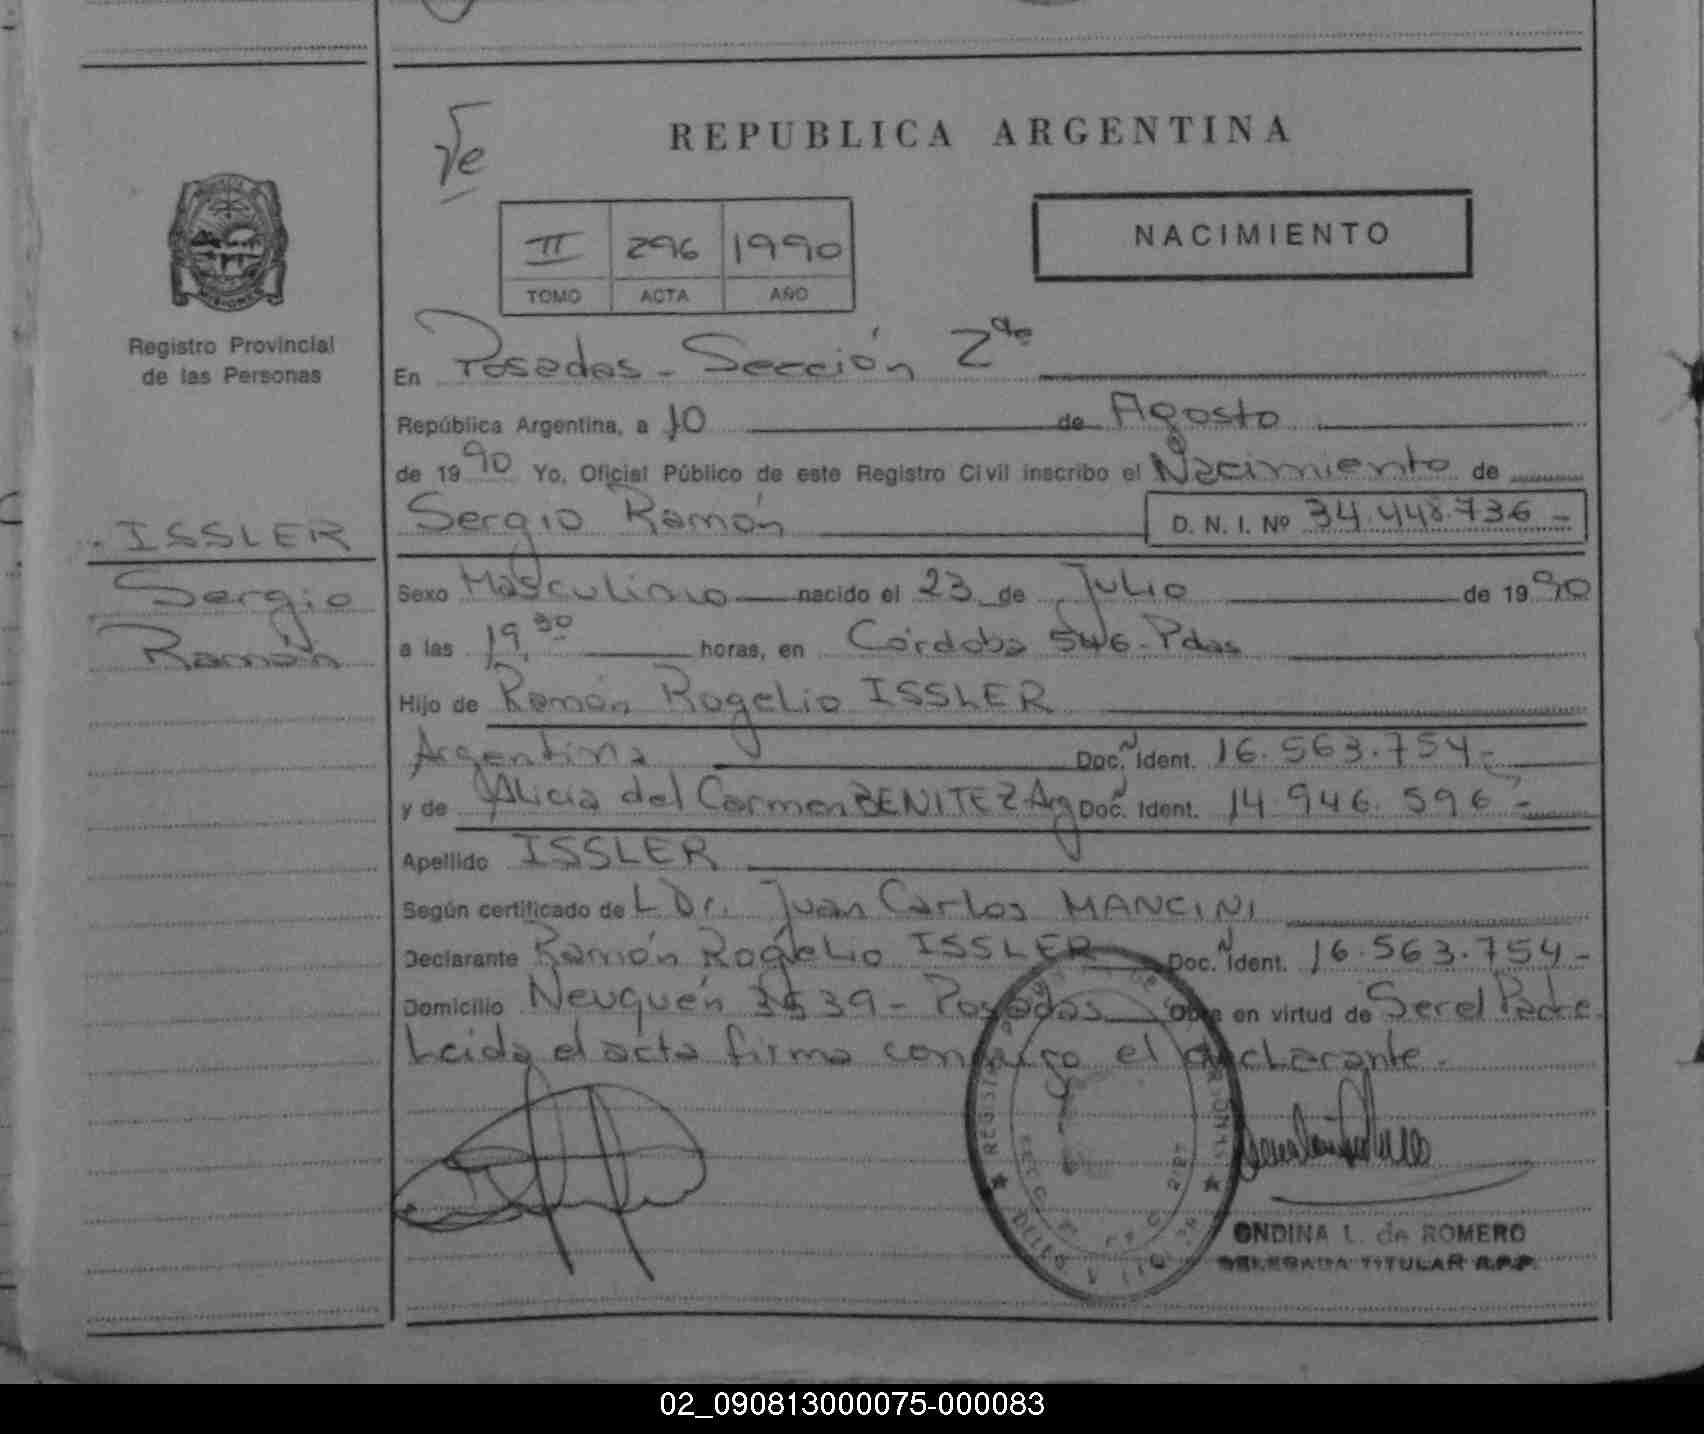 REPUBLICA ARGENTINA
II 296 1990
TOMO ACTA AÑO
NACIMIENTO
Registro Provincial
de las Personas
ISSLER
Sergio
Ramón
En Posadas - Sección 2da
República Argentina, a 10 de Agosto
de 1990 Yo, Oficial Público de este Registro Civil inscribo el Nacimiento de
Sergio Ramón D. N. I. Nº 34.448.736 -
Sexo Masculino nacido el 23 de Julio de 1990
a las 19,30 horas, en Córdoba 546 - Pdas
Hijo de Ramón Rogelio ISSLER
Argentina Doc. N Ident. 16.563.754 -
y de Alicia del Carmen BENITEZ Arg Doc. N Ident. 14.946.596 -
Apellido ISSLER
Según certificado de L Dr. Juan Carlos MANCINI
Declarante Ramón Rogelio ISSLER Doc. N Ident. 16.563.754 -
Domicilio Neuquén 3539 - Posadas Obra en virtud de Ser el Padre.
Leida el acta firma conmigo el declarante.
ONDINA L. de ROMERO
DELEGADA TITULAR R.P.P.
02_090813000075-000083